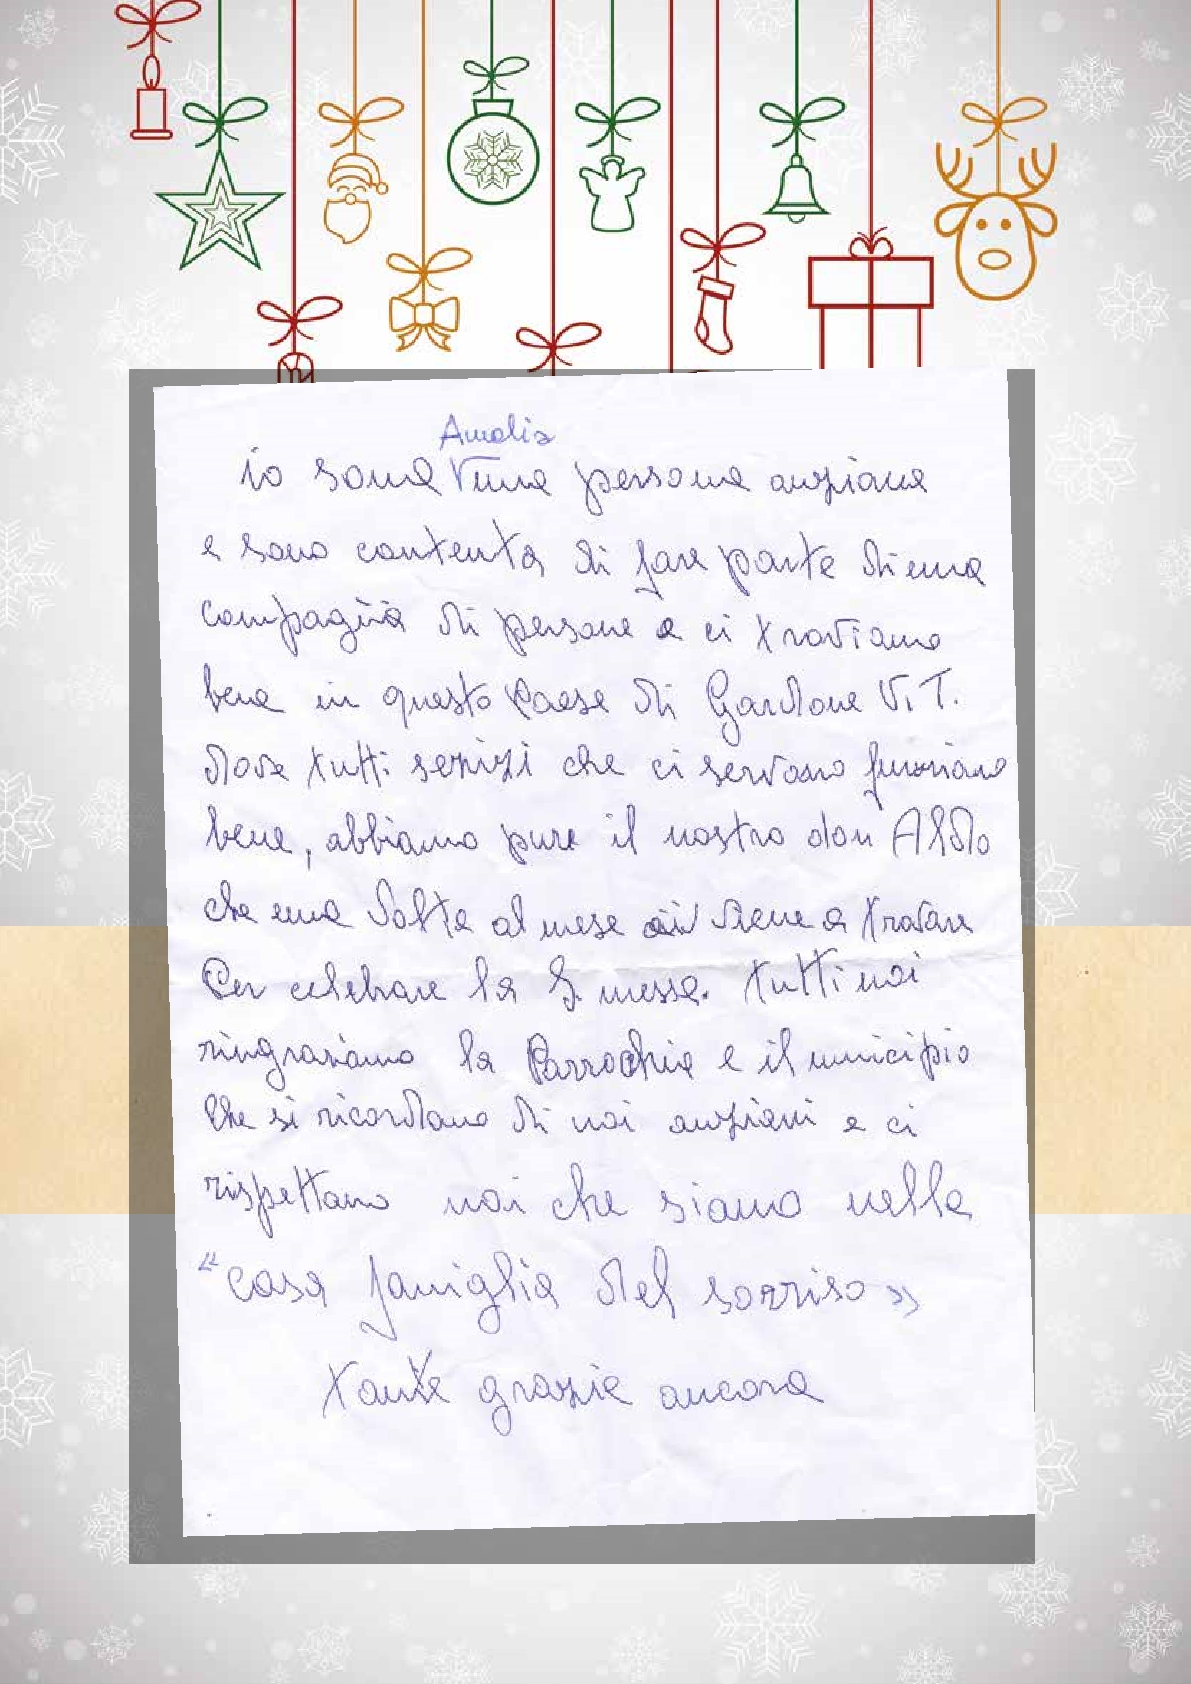 Amalia
io sono una persona anziana
e sono contenta di fare parte di una
compagnia di persone e ci troviamo
bene in questo Paese di Gardone V.T.
dove tutti servizi che ci servono funziano
bene, abbiamo pure il nostro don Aldo
che una volta al mese ci viene a trovare
Per celebrare la S. messa. tutti noi
ringraziamo la Parrochia e il municipio
che si ricordano di noi anziani e ci
rispettano noi che siamo nella
"casa famiglia del sorriso"
tante grazie ancora